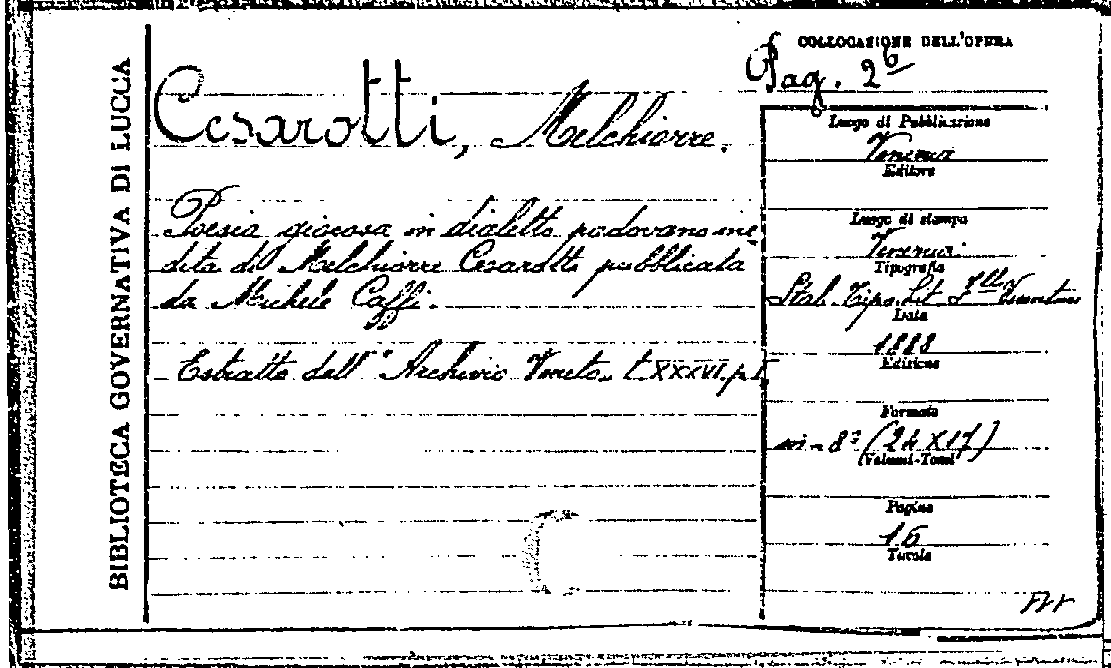 BIBLIOTECA GOVERNATIVA DI LUCCA
COLLOCAZIONE DELL'OPERA
Pag. 26
Cesarotti, Melchiorre.
Poesia giocosa in dialetto padovano ine
dita di Melchiorre Cesarotti pubblicata
da Michele Caffi.
Estratto dall' "Archivio Veneto" t. XXXVI. p. I.
Luogo di Pubblicazione
Venezia
Editore
Luogo di stampa
Venezia
Tipografia
Stab. Tipo. Lit. F.lli Visentini
Data
1888
Edizione
Formato
in-8° (24x17)
(Volumi-Tomi)
Pagine
16
Tavole